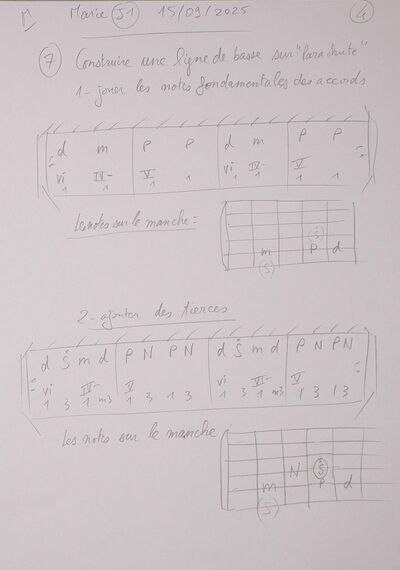 Marie S1 15/09/2025 4
7 Construire une ligne de basse sur "Parachute"
1- jouer les notes fondamentales des accords
d m P P d m P P
vi IV- V vi IV- V
1 1 1 1 1 1 1 1
Les notes sur le manche :
(Š)
m P d
(S)
2- ajouter des tierces
d Š m d P N P N d Š m d P N P N
vi IV- V vi VI- V
1 3 1 m3 1 3 1 3 1 3 1 m3 1 3 1 3
Les notes sur le manche
N Š
m P d
(S)